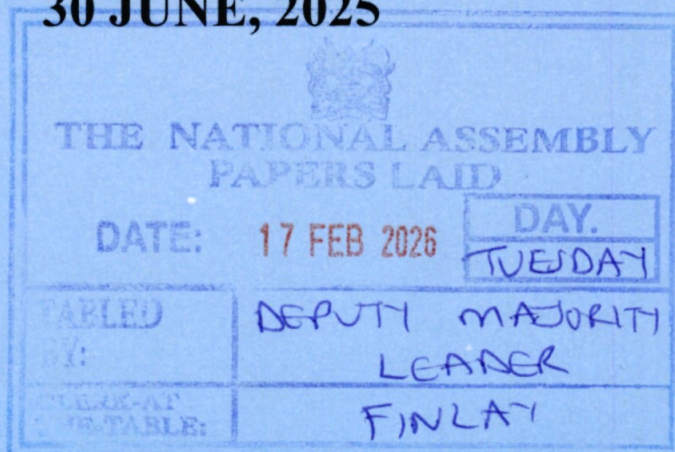 30 JUNE, 2025
THE NATIONAL ASSEMBLY
PAPERS LAID
DATE: 17 FEB 2026
DAY.
TUESDAY
TABLED BY:
DEPUTY MAJORITY
LEADER
CLERK-AT THE-TABLE:
FINLAY